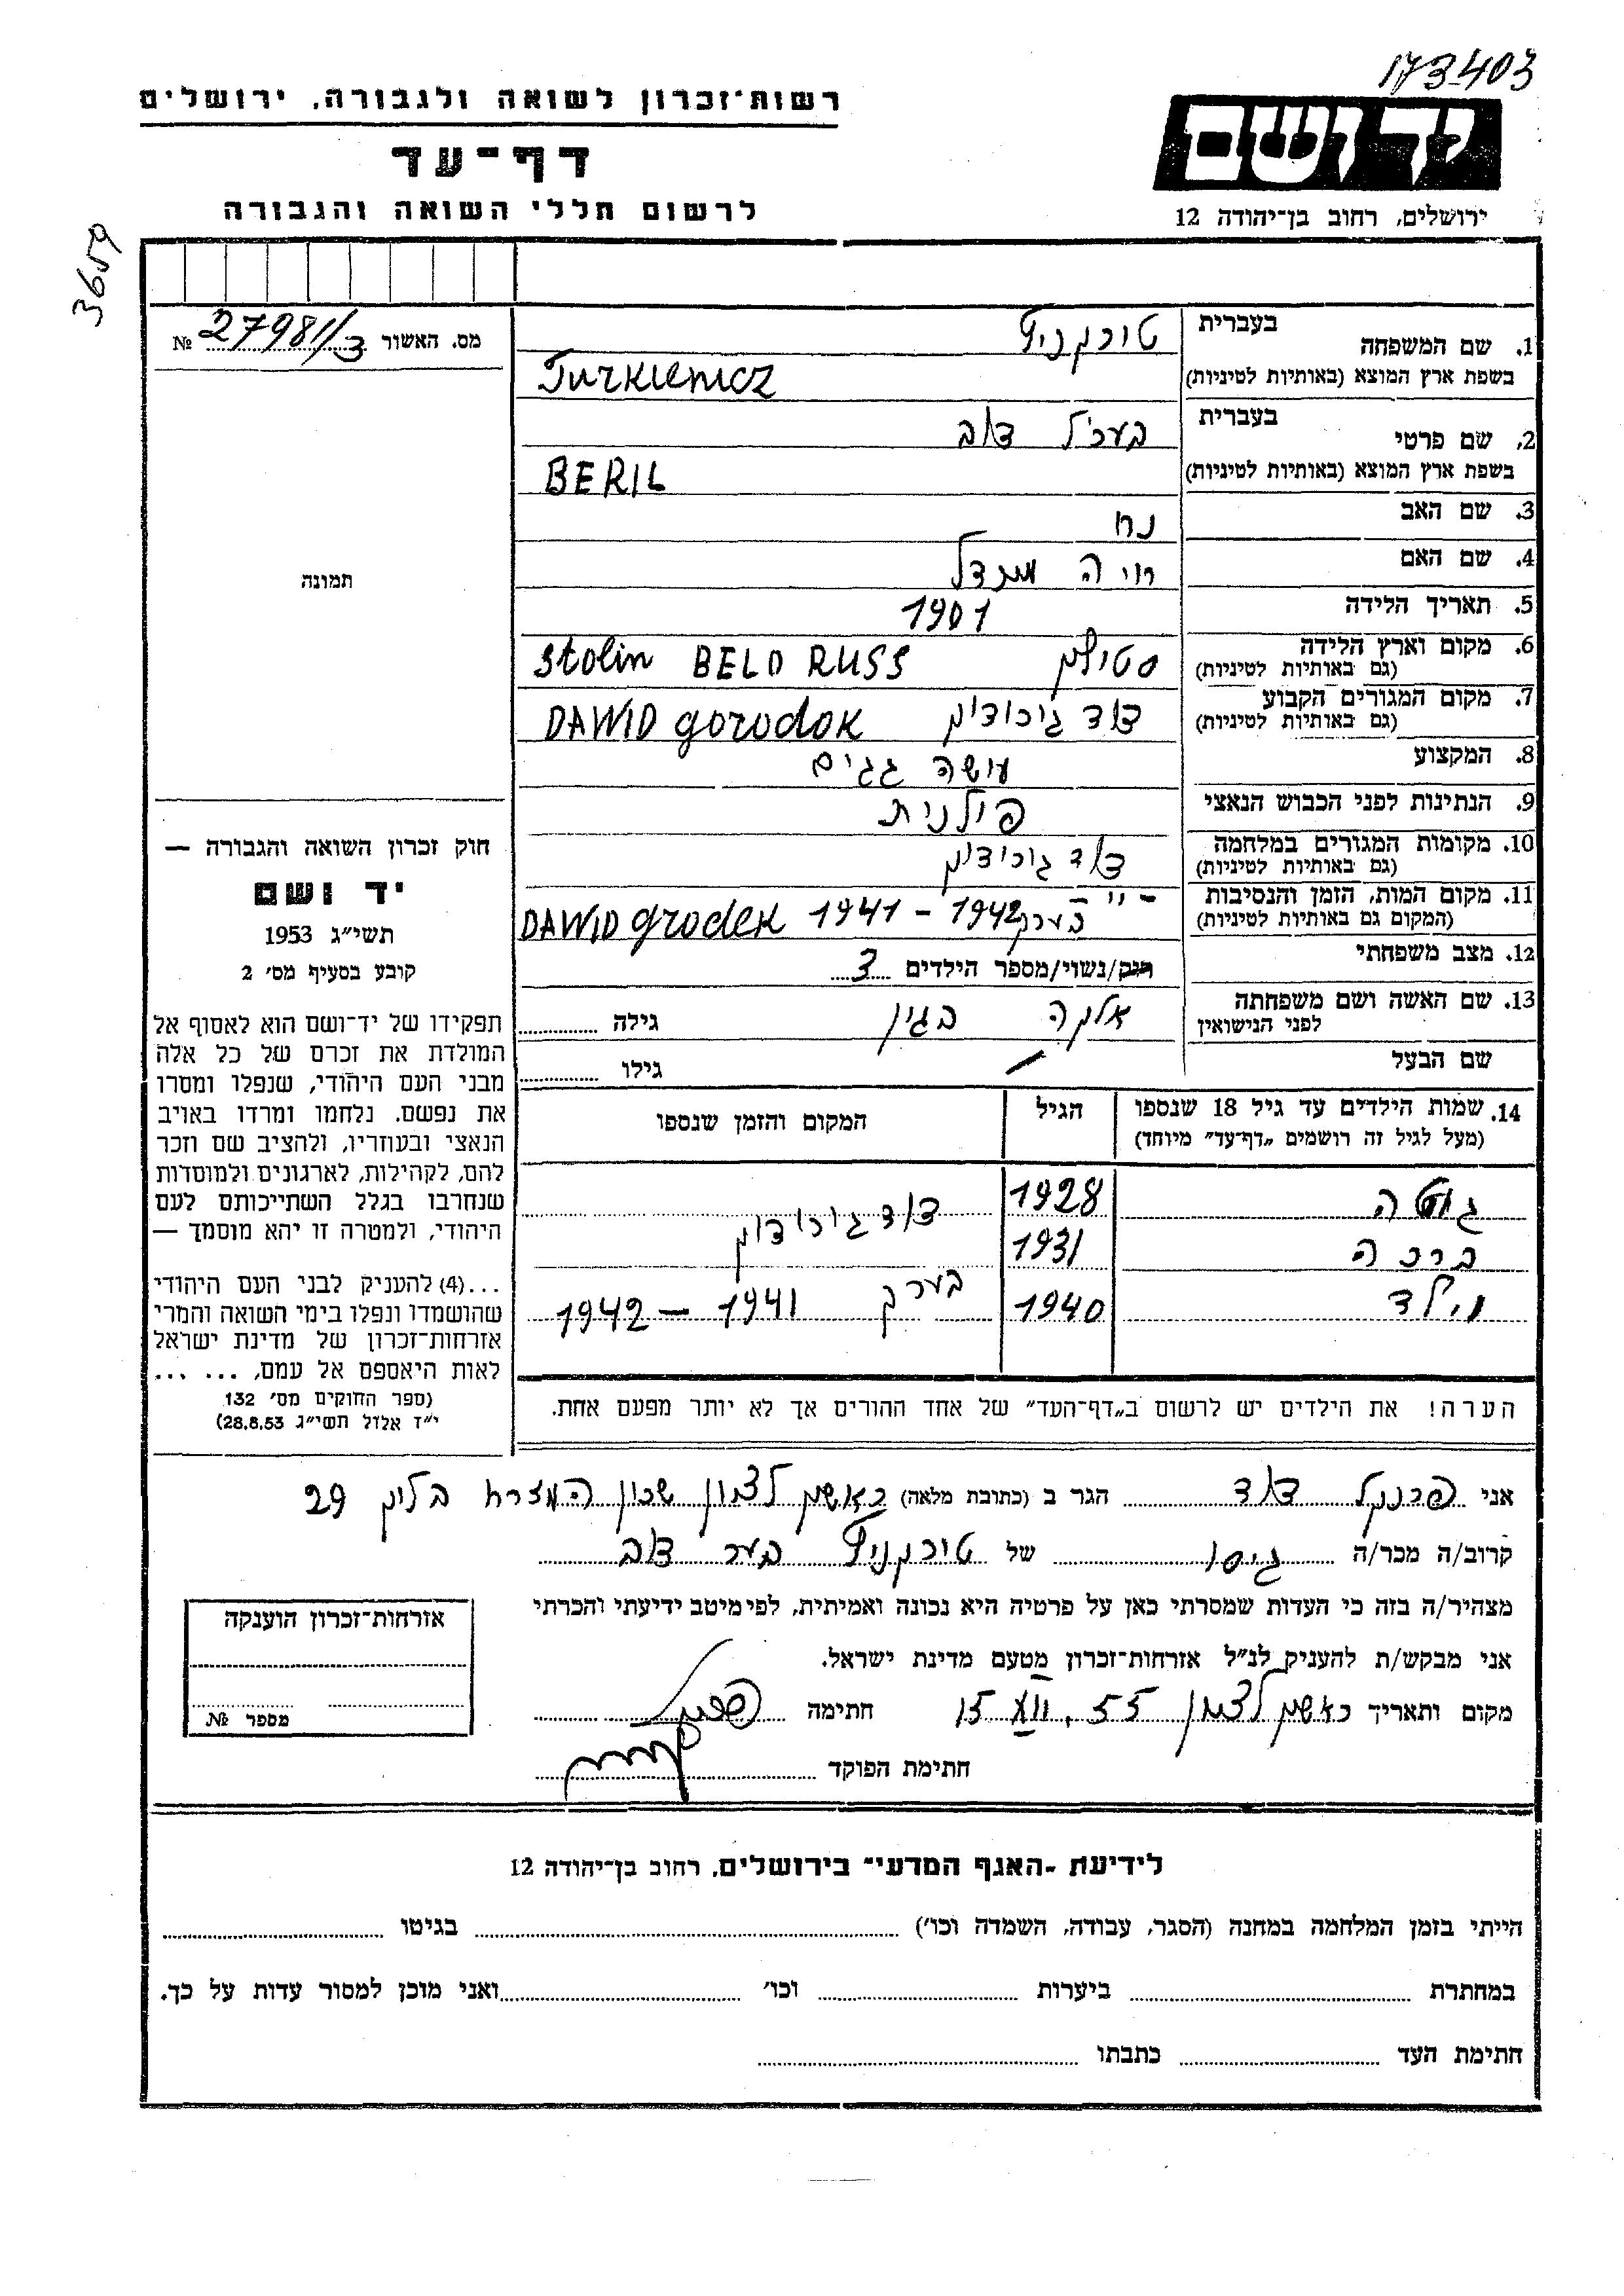 173403
רשות־זכרון לשואה ולגבורה, ירושלים
דף־עד
לרשום חללי השואה והגבורה
יד ושם
ירושלים, רחוב בן־יהודה 12
3659
מס. האשור 27981/3 №
תמונה
1. שם המשפחה בעברית טורקניץ
בשפת ארץ המוצא (באותיות לטיניות) Turkienicz
2. שם פרטי בעברית בערל דוב
בשפת ארץ המוצא (באותיות לטיניות) BERIL
3. שם האב נח
4. שם האם חיה מינדל
5. תאריך הלידה 1901
6. מקום וארץ הלידה (גם באותיות לטיניות) סטולין Stolin BELO RUSS
7. מקום המגורים הקבוע (גם באותיות לטיניות) דוד גורודוק DAWID gorodok
8. המקצוע עושה גגים
9. הנתינות לפני הכבוש הנאצי פולנית
10. מקומות המגורים במלחמה (גם באותיות לטיניות) דוד גורודוק
11. מקום המות, הזמן והנסיבות (המקום גם באותיות לטיניות) - " - בערך 1942 - 1941 DAWID grodek
12. מצב משפחתי רווק/נשוי/מספר הילדים 3
13. שם האשה ושם משפחתה לפני הנישואין אלקה בגין גילה
שם הבעל גילו
14. שמות הילדים עד גיל 18 שנספו הגיל המקום והזמן שנספו
(מעל לגיל זה רושמים „דף־עד" מיוחד)
גיטה 1928 דוד גורודוק
ברכה 1931
וילד 1940 בערך 1941 - 1942
הערה! את הילדים יש לרשום ב„דף־העד" של אחד ההורים אך לא יותר מפעם אחת.
חוק זכרון השואה והגבורה —
יד ושם
תשי״ג 1953
קובע בסעיף מס׳ 2
תפקידו של יד־ושם הוא לאסוף אל
המולדת את זכרם של כל אלה
מבני העם היהודי, שנפלו ומסרו
את נפשם. נלחמו ומרדו באויב
הנאצי ובעוזריו, ולהציב שם וזכר
להם, לקהילות, לארגונים ולמוסדות
שנחרבו בגלל השתייכותם לעם
היהודי, ולמטרה זו יהא מוסמך —
...(4) להעניק לבני העם היהודי
שהושמדו ונפלו בימי השואה והמרי
אזרחות־זכרון של מדינת ישראל
לאות היאספם אל עמם, ... ...
(ספר החוקים מס׳ 132
י״ז אלול תשי״ג 28.8.53)
אני פרנקל דוד הגר ב (כתובת מלאה) ראשון לציון שכון המזרח בלוק 29
קרוב/ה מכר/ה גיסו של טורקניץ בער דוב
מצהיר/ה בזה כי העדות שמסרתי כאן על פרטיה היא נכונה ואמיתית, לפי מיטב ידיעתי והכרתי
אני מבקש/ת להעניק לנ״ל אזרחות־זכרון מטעם מדינת ישראל.
מקום ותאריך ראשון לציון 55. 15 חתימה
חתימת הפוקד
אזרחות־זכרון הוענקה
מספר №
לידיעת -האגף המדעי־ בירושלים, רחוב בן־יהודה 12
הייתי בזמן המלחמה במחנה (הסגר, עבודה, השמדה וכו׳) בגיטו
במחתרת ביערות וכו׳ ואני מוכן למסור עדות על כך.
חתימת העד כתבתו